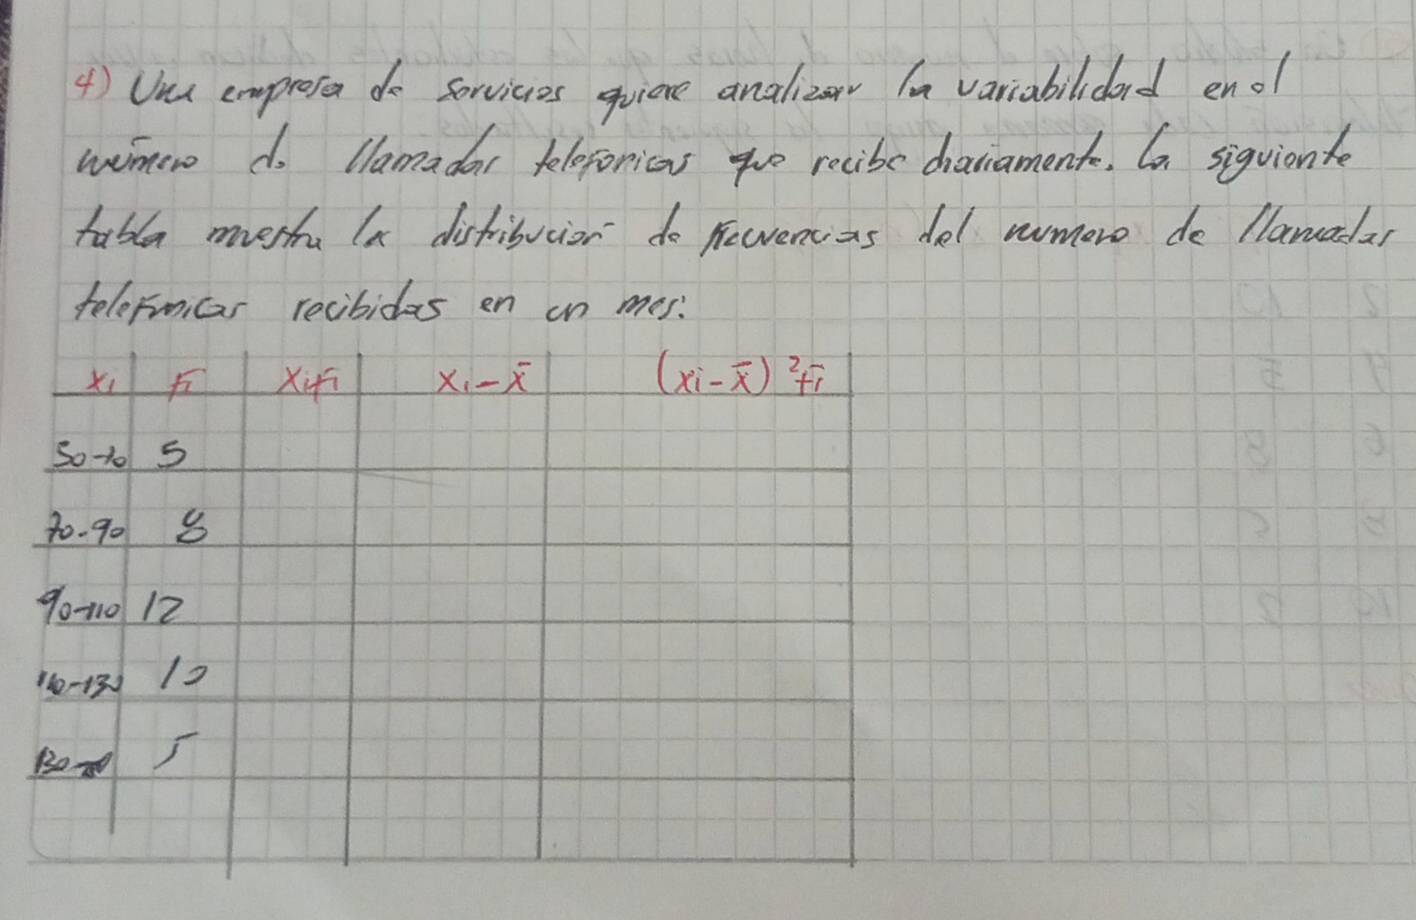 4) Una empresa de servicios quiere analizar la variabilidad en el
número de llamadas telefonicas que recibe diariamente. La siguiente
tabla muestra la distribución de frecuencias del numero de llamadas
telefonicas recibidas en un mes:
xi fi xifi xi - x̄ (xi - x̄)² fi
50-70 5
70-90 8
90-110 12
110-130 10
130- 5